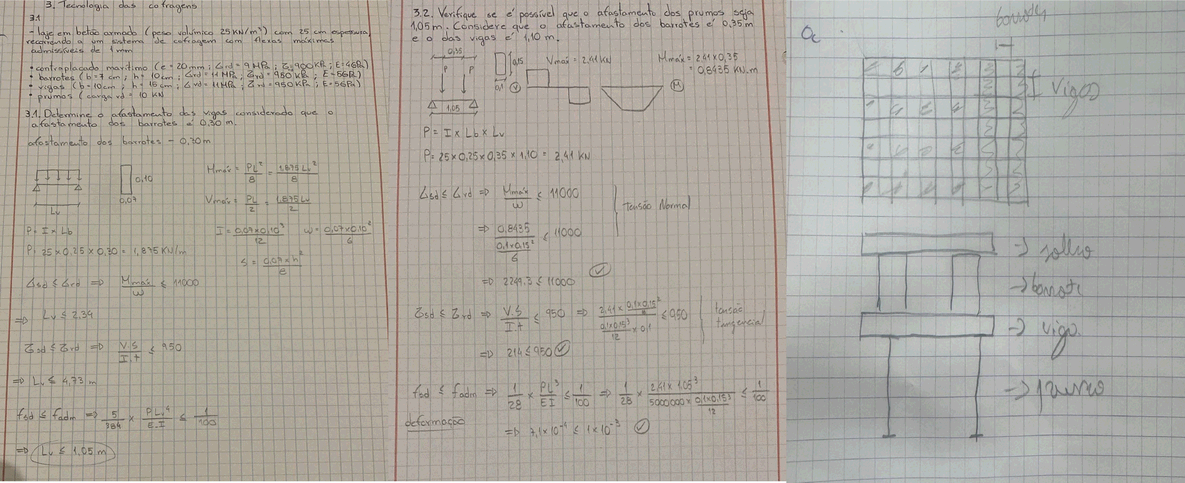 3. Tecnologia das cofragens
3.1
- laje em betão armado (peso volúmico 25 KN/m³) com 25 cm espessura,
recorrendo a um sistema de cofragem com flexas máximas
admissíveis de 1 mm
• contraplacado marítimo (e = 20mm; σrd = 9 MPa; Zrd = 900 KPa; E=6GPa)
• barrotes (b=7 cm; h= 10cm; σrd = 11 MPa; Zrd = 950 KPa; E=5GPa)
• vigas (b=10cm; h= 15 cm; σrd = 11 MPa; Zrd = 950 KPa; E=5GPa)
• prumos (carga rd = 10 KN
3.1. Determine o afastamento das vigas considerado que o
afastamento dos barrotes é 0,30 m.
afastamento dos barrotes - 0,30m
0,10
0,07
Lv
Mmáx = PL²/8 = 1,875 Lv²/8
Vmáx = PL/2 = 1,875 Lv/2
P= I × Lb
I = 0,07×0,10³/12 w = 0,07×0,10²/6
P= 25 × 0,25 × 0,30 = 1,875 KN/m
S = 0,07×h²/8
σsd ≤ σrd => Mmáx/w ≤ 11000
=> Lv ≤ 2,34
Zsd ≤ Zrd => V.S/I.t ≤ 950
=> Lv ≤ 4,73 m
fsd ≤ fadm => 5/384 × PLv⁴/E.I ≤ 1/100
=> Lv ≤ 1,05 m
3.2. Verifique se é possível que o afastamento dos prumos seja
1,05 m. Considere que o afastamento dos barrotes é 0,35m
e o das vigas é 1,10 m.
0,35
P P
1,05
0,15
0,1
Vmáx = 2,41 KN
V
Mmáx = 2,41 × 0,35
= 0,8435 KN.m
M
P = I × Lb × Lv
P = 25 × 0,25 × 0,35 × 1,10 = 2,41 KN
σsd ≤ σrd => Mmáx/w ≤ 11000
Tensão Normal
=> 0,8435/(0,1×0,15²/6) ≤ 11000
=> 2249,3 ≤ 11000
Zsd ≤ Zrd => V.S/I.t ≤ 950 => (2,41 × 0,1×0,15²/8)/(0,1×0,15³/12 × 0,1) ≤ 950
tensão
tangencial
=> 241 ≤ 950
fsd ≤ fadm => 1/28 × PL³/EI ≤ 1/100 => 1/28 × 2,41 × 1,05³/(5000000 × 0,1×0,15³/12) ≤ 1/100
deformação
=> 7,1×10⁻⁴ ≤ 1×10⁻³
barrotes
a
Vigas
-> solho
-> barrote
-> viga
-> prumo